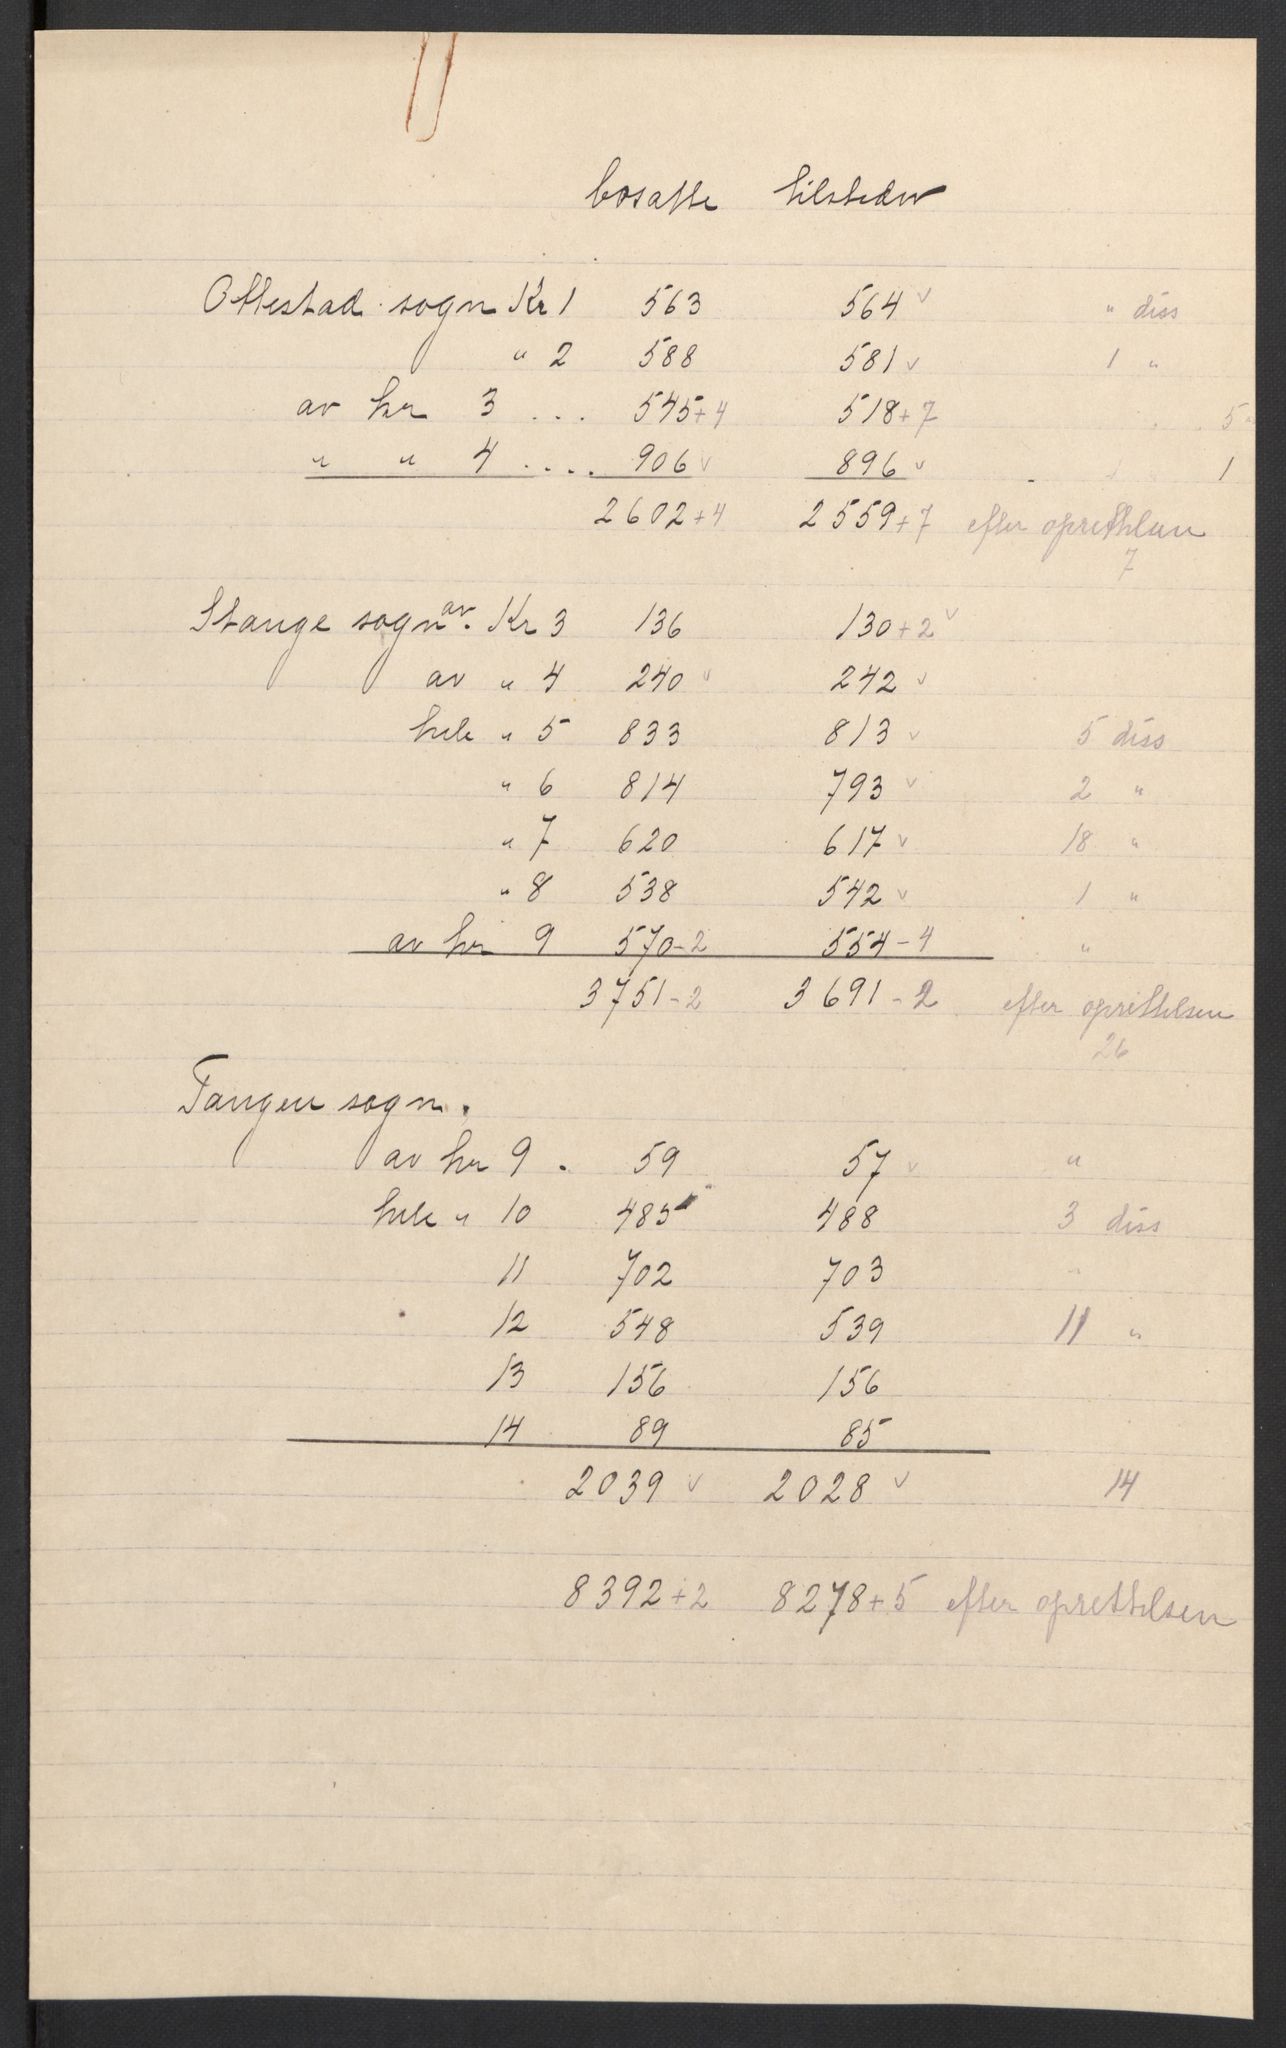 bosatte tilstedev
Ottestad sogn Kr 1 563 564 v " diss
" 2 588 581 v 1 "
av kr 3 ... 545+4 518+7 5
" " 4 .... 906 v 896 v 1
2602+4 2559+7 efter oprettelsen
7
Stange sogn av Kr 3 136 130+2 v
av " 4 240 v 242 v
hele " 5 833 813 v 5 diss
" 6 814 793 v 2 "
" 7 620 617 v 18 "
" 8 538 542 v 1 "
av kr 9 570-2 554-4 "
3751-2 3691-2 efter oprettelsen
26
Tangen sogn.
av kr 9 . 59 57 v "
hele " 10 485 488 3 diss
11 702 703 "
12 548 539 11 "
13 156 156
14 89 85
2039 v 2028 v 14
8392+2 8278+5 efter oprettelsen